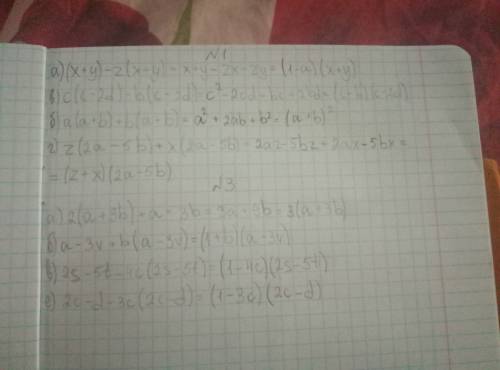 N1
а) (x+y)-z(x+y)=x+y-zx-zy=(1-a)(x+y)
в) c(c-2d)-b(c-2d)=c²-2cd-bc+2bd=
б) a(a+b)+b(a+b)=a²+2ab+b²=(a+b)²
г) z(2a-5b)+x(2a-5b)=2az-5bz+2ax-5bx=
=(z+x)(2a-5b)
N3
а) 2(a+3b)+a+3b=3a+9b=3(a+3b)
б) a-3v+b(a-3v)=(1+b)(a-3v)
в) 2s-5t-4c(2s-5t)=(1-4c)(2s-5t)
е) 2c-d-3c(2c-d)=(1-3c)(2c-d)